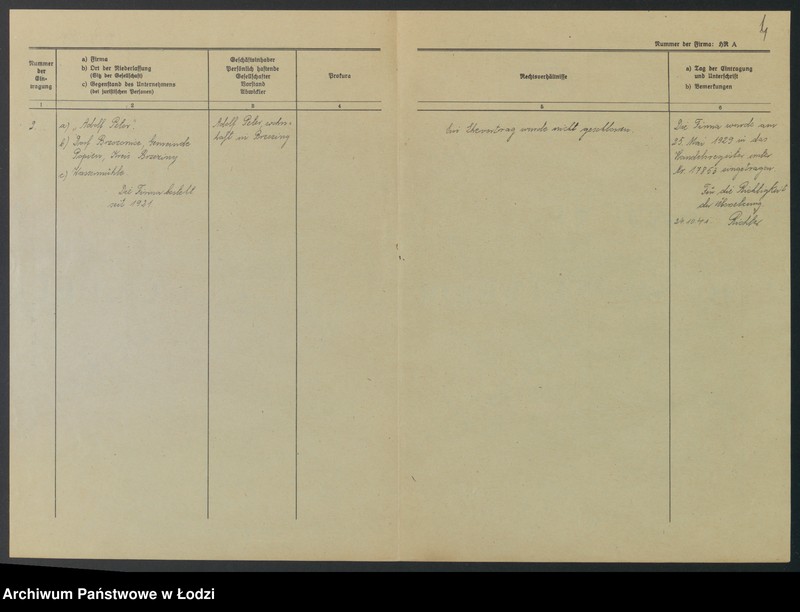 4
Nummer der Firma: HR A
Nummer
der
Ein-
tragung
a) Firma
b) Ort der Niederlassung
(Sitz der Gesellschaft)
c) Gegenstand des Unternehmens
(bei juristischen Personen)
Geschäftsinhaber
Persönlich haftende
Gesellschafter
Vorstand
Abwickler
Prokura
Rechtsverhältnisse
a) Tag der Eintragung
und Unterschrift
b) Bemerkungen
1
2
3
4
5
6
a) „Adolf Peler"
b) Dorf Gemeinde
Kreis Brzeziny
c) Wassermühle
Die Firma besteht
seit 1921.
Adolf Peler, wohn-
haft in Brzeziny
Ein Ehevertrag wurde nicht geschlossen.
Die Firma wurde am
25. Mai 1929 in das
Handelsregister unter
Nr. eingetragen
Für die Richtigkeit
der
Archiwum Państwowe w Łodzi